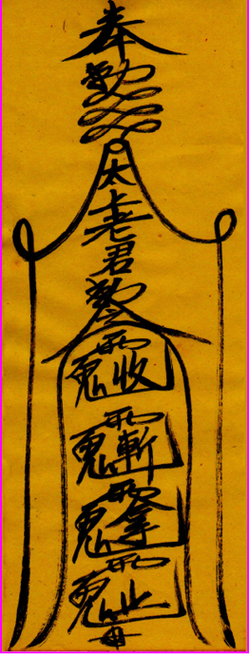 奉
勅
太
上
老
君
勅
令
雨鬼收
雨鬼斬
雨鬼拿
雨鬼止